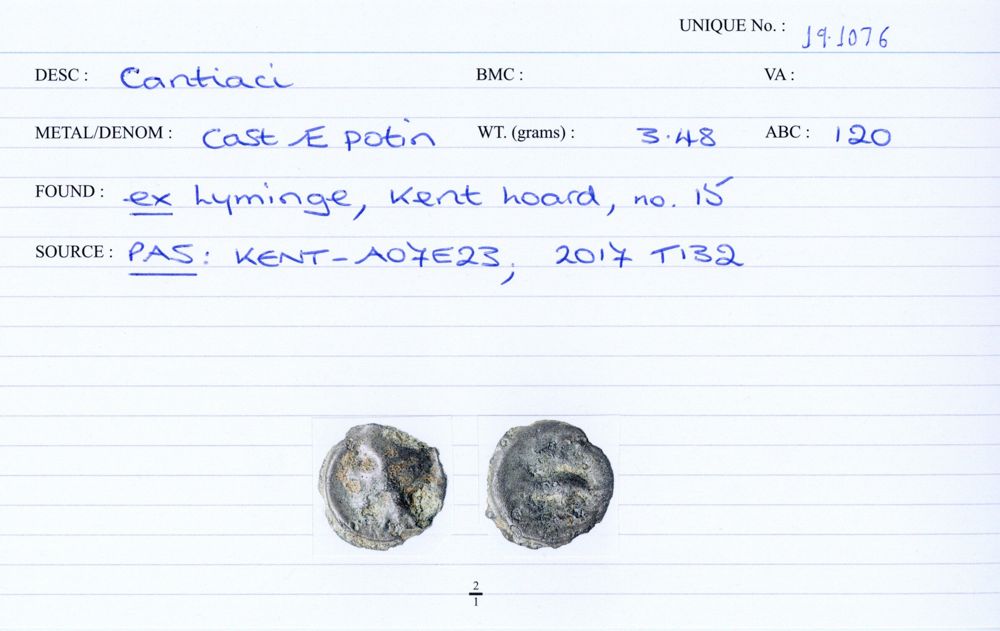 UNIQUE No. : 19.1076
DESC : Cantiaci BMC : VA :
METAL/DENOM : Cast Æ potin WT. (grams) : 3.48 ABC : 120
FOUND : ex Lyminge, Kent hoard, no. 15
SOURCE : PAS: KENT-A07E23, 2017 T132
2
1